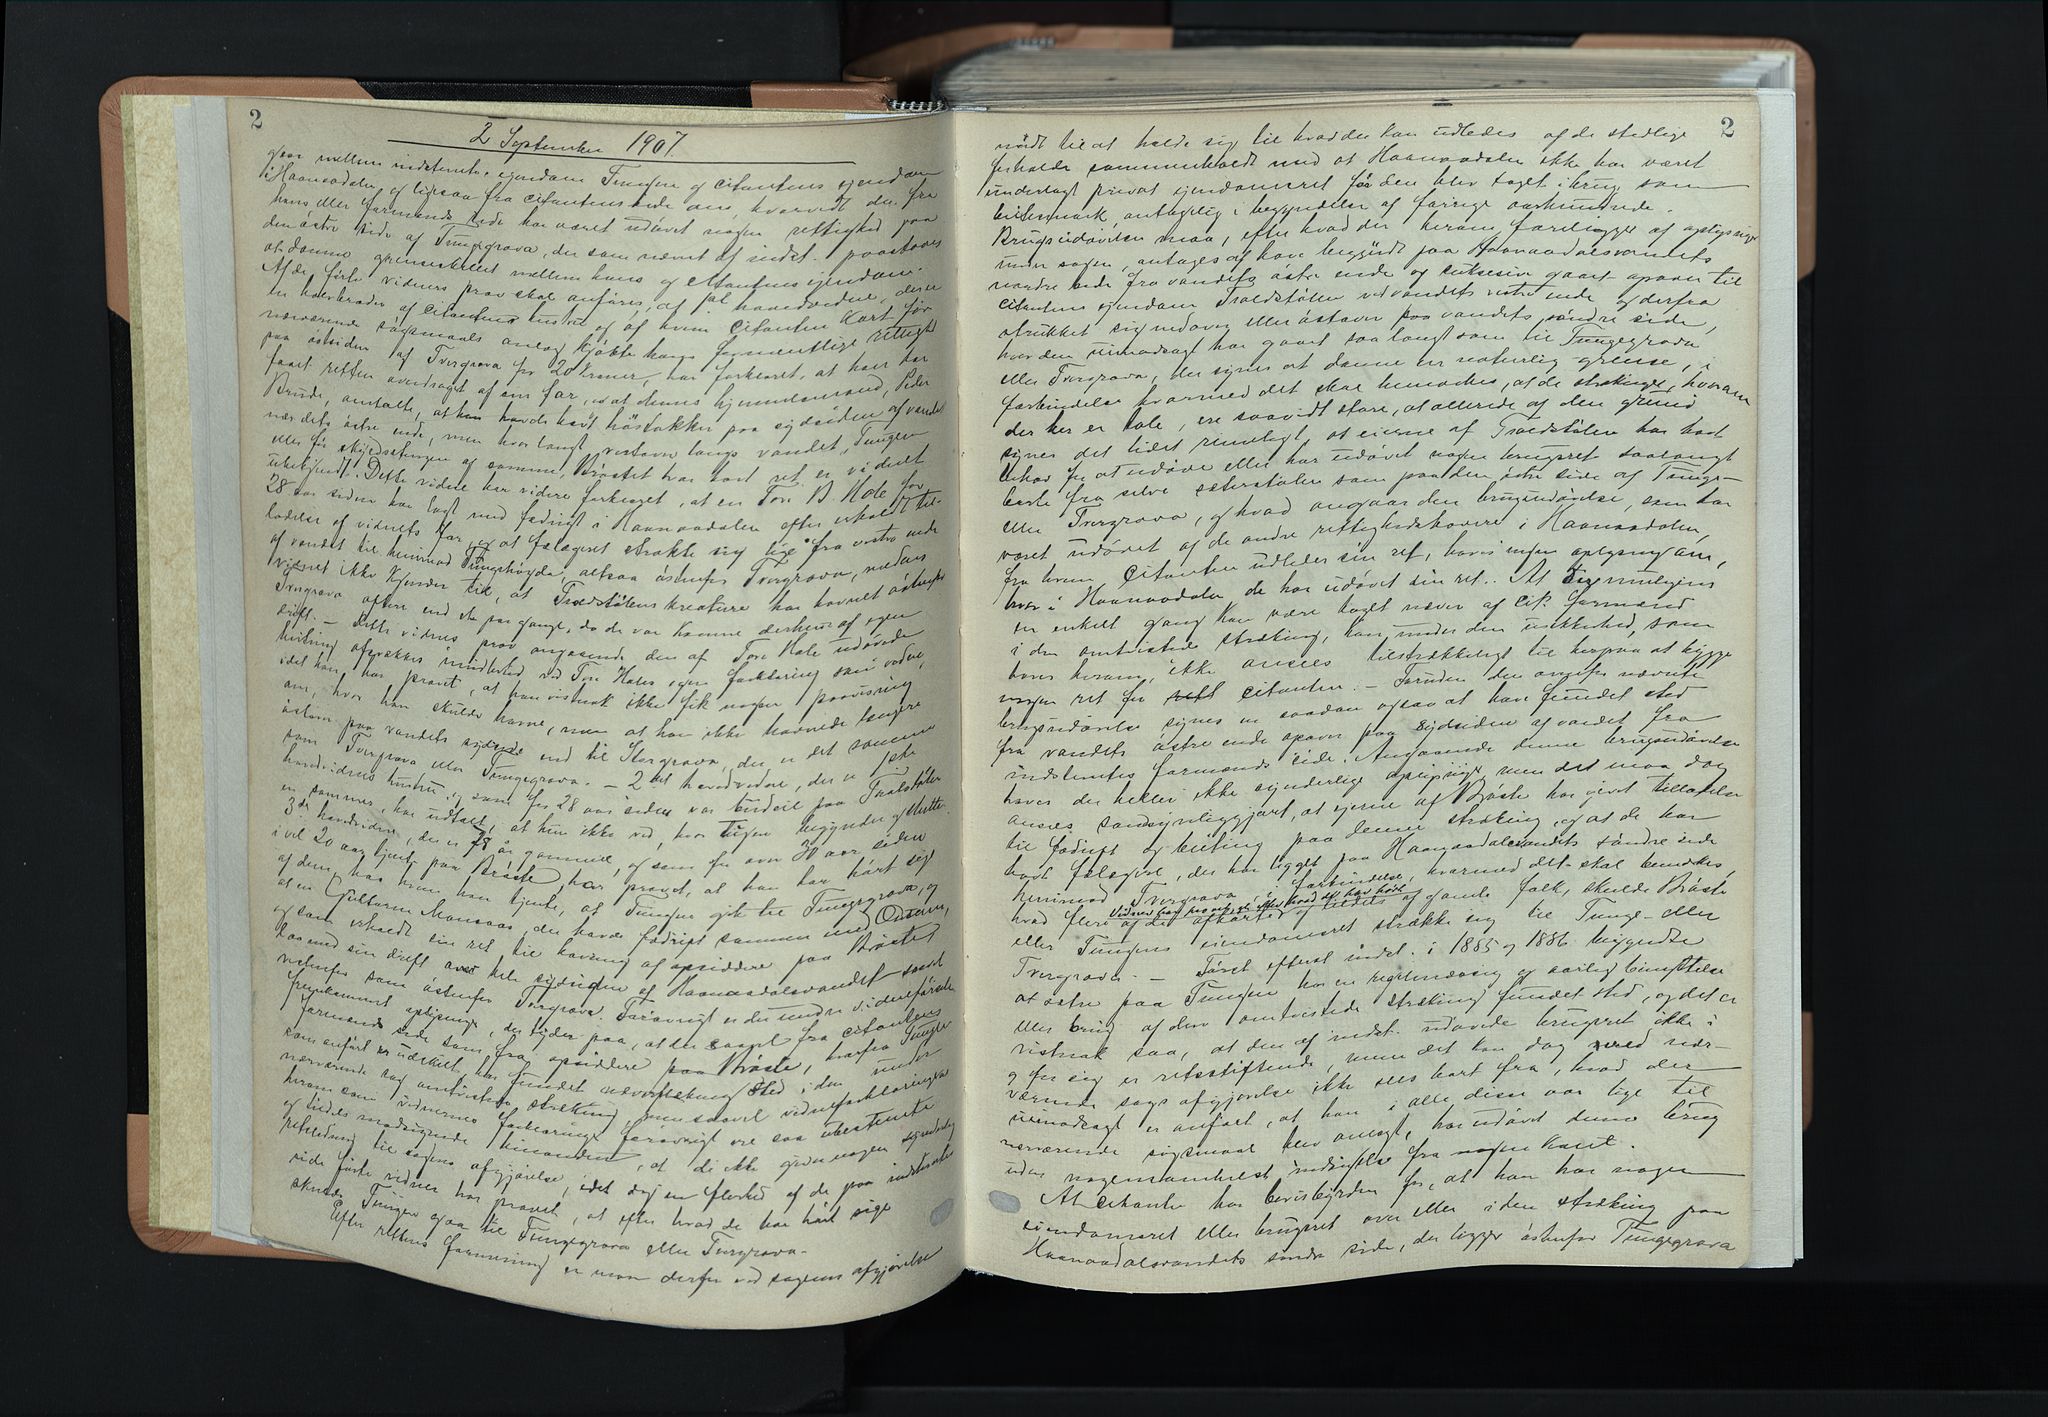 2
2 September 1907.
gaar mellem indstevntes ejendom Tungen og citantens ejendom
i Haanaadalen og ligesaa fra citantens side om, hvorvidt der fra
hans eller formænds side har været udøvet nogen rettighed paa
den østre side af Tungegrova, der som nævnt af indst. paastaaes
at danne grænseskillet mellem hans og citantens ejendom.
Af de førte vidners prov skal anføres, at 1st hovedvidne, der er
en halvbroder af citantens hustru og af hvem citanten kort før
nærværende søgsmaals anlæg kjøbte hans formentlige rettighed
paa østsiden af Tvergrova for 20 kroner, har forklaret, at han har
faaet retten overdraget af sin far, at dennes hjemmelsmand, Peder
Brude, omtalte, at han havde havt høstakker paa sydsiden af vandet
nær dets østre ende, men hvor langt vestover langs vandet, Tungen
eller før skyldsætningen af samme, Brøstet har havt ret er vidnet
ubekjendt. Dette vidne har videre forklaret, at en Tore B. Hole for
28 aar siden har lagt med fædrift i Haanaadalen efter erholdt til-
ladelse af vidnets far og at fælægeret strakte sig lige fra vestre ende
af vandet til henimod Tungehøgda, altsaa østenfor Tvergrova, medens
vidnet ikke kjender til, at Traedstølens kreaturer har havnet østenfor
Tvergrova oftere end et par gange, da de var komne derhen af egen
drift. – Dette vidnes prov angaaende den af Tore Hole udøvede
beiting afsvækkes imidlertid ved Tore Holes egen forklaring som vidne,
idet han har provet, at han vistnok ikke fik nogen paavisning
om, hvor han skulde havne, men at han ikke havnede længere
østom paa vandets sydside end til Storgrova, der er det samme
som Tvergrova eller Tungegrova. – 2det hovedvidne, der er 1ste
hovedvidnes hustru, og som for 28 aar siden var budeie paa Traedstølen
en sommer, har udtalt, at hun ikke ved, hvor Tungen begynder og slutter.
3die hovedvidne, der er 78 år gammel, og som for over 30 aar siden
i vel 20 aar tjente paa Brøste, har provet, at han har hørt sige
af dem, hos hvem han tjente, at Tungen gik til Tungegrova, og
at en Guttorm Monsaas, der havde fædrift sammen med Ousum,
og som erholdt sin ret til havning af opsiddere paa Brøstet
laa med sin drift over hele sydsiden af Haanaadalsvandet saavel
vestenfor som østenfor Tvergrova. Forøvrigt er der under vidneførselen
fremkommet oplysninger, der tyder paa, at der saavel fra citantens
formænds side som fra opsiddere paa Brøste, hvorfra Tungen
som anført er udskilt, har fundet næverflækning sted i den under
nærværende sag omtvistede strækning, men saavel vidneforklaringerne
herom som vidnernes forklaringer forøvrigt ere saa ubestemte
og tildels modsigende hinanden, at de ikke giver nogen synderlig
veiledning til sagens afgjørelse, idet dog en flerhed af de paa indstevntes
side førte vidner har provet, at efter hvad de har hørt sige
skulde Tungen gaa til Tungegrova eller Tvergrova.
Efter rettens formening er man derfor ved sagens afgjørelse
2
nødt til at holde sig til hvad der kan udledes af de stedlige
forholde sammenholdt med at Haanaadalen ikke har været
underlagt privat ejendomsret før den blev taget i brug som
beitesmark, antagelig i begyndelse af forrige aarhundrede.
Brugsudøvelsen maa, efter hvad der herom foreligger af oplysninger
under sagen, antages at have begyndt paa Haanaadalsvandets
nordre side fra vandets østre ende og suksesiv gaaet opover til
citantens ejendom Traedstølen ved vandets vestre ende og derfra
strukket sig nedover eller østover paa vandets søndre side,
hvor den uimodsagt har gaaet saa langt som til Tungegrova
eller Tvergrova, der synes at danne en naturlig grense, i
forbindelse hvormed det skal bemærkes, at de strækninger, hvorom
der her er tale, ere saavidt store, at allerede af den grund
synes det lidet rimeligt, at eierne af Traedstølen har havt
behov for at udøve eller har udøvet nogen brugsret saalangt
borte fra selve sæterstølen som paa den østre side af Tunge-
eller Tvergrova, og hvad angaar den brugsudøvelse, som har
været udøvet af de andre rettighedshavere i Haanaadalen,
fra hvem citanten udleder sin ret, haves ingen oplysning om,
hvor i Haanaadalen de har udøvet sin ret. At der muligens
en enkelt gang kan være taget næver af cit. formænd
i den omtvistede strækning, kan under den usikkerhed, som
haves herom, ikke ansees tilstrækkeligt til herpaa at bygge
nogen ret for citanten. – Foruden den ovenfor nævnte
brugsudøvelse synes en saadan ogsaa at have fundet sted
fra vandets østre ende opover paa sydsiden af vandet fra
indstevntes formænds side. Angaaende denne brugsudøvelse
haves der heller ikke synderlige oplysninger, men det maa dog
ansees sandsynliggjort, at ejerne af Brøste har givet tilladelse
til fædrift og beiting paa denne strækning, og at de har
havt fælægre, der har ligget paa Haanaadalsvandets søndre side
henimod Tvergrova i forbindelse, hvormed det skal bemærkes,
Vidner har provet, at efter hvad de har hørt
hvad flere af der afhørte og tildels af gamle folk, skulde Brøste
eller Tungens eiendomsret strække sig til Tunge- eller
Tvergrova. – Først efterat indst. i 1885 og 1886 begyndte
at østre paa Tungen har en regelmæssig og aarlig benyttelse
eller brug af den omtvistede strækning fundet sted, og det er
vistnok saa, at den af indst. udøvede brugsret ikke i
og for sig er retsstiftende, men det kan dog ved nær-
værende sags afgjørelse ikke sees bort fra, hvad der
uimodsagt er anført, at han i alle disse aar lige til
nærværende søgsmaal blev anlagt, har udøvet denne brug
uden nogensomhelst indsigelse fra nogen kant.
At citanten har bevisbyrden for, at han har nogen
eiendomsret eller brugsret over eller i den strækning paa
Haanaadalsvandets søndre side, der ligger østenfor Tungegrova